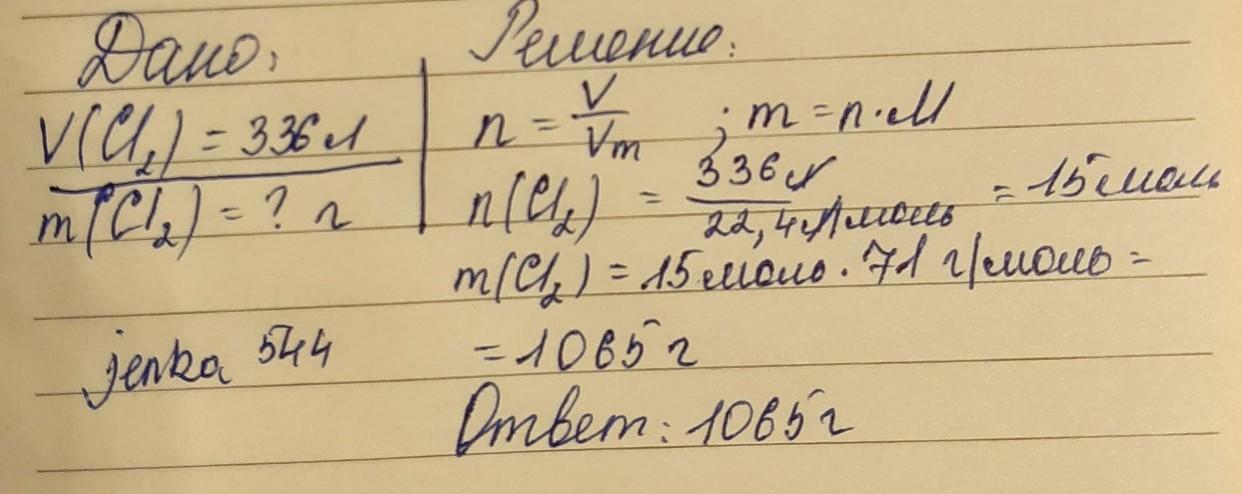 Дано:
V(Cl₂) = 336 л
m(Cl₂) = ? г
Решение:
n = V/Vm ; m = n·M
n(Cl₂) = 336 л / 22,4 л/моль = 15 моль
m(Cl₂) = 15 моль · 71 г/моль =
= 1065 г
Ответ: 1065 г
jenka 544